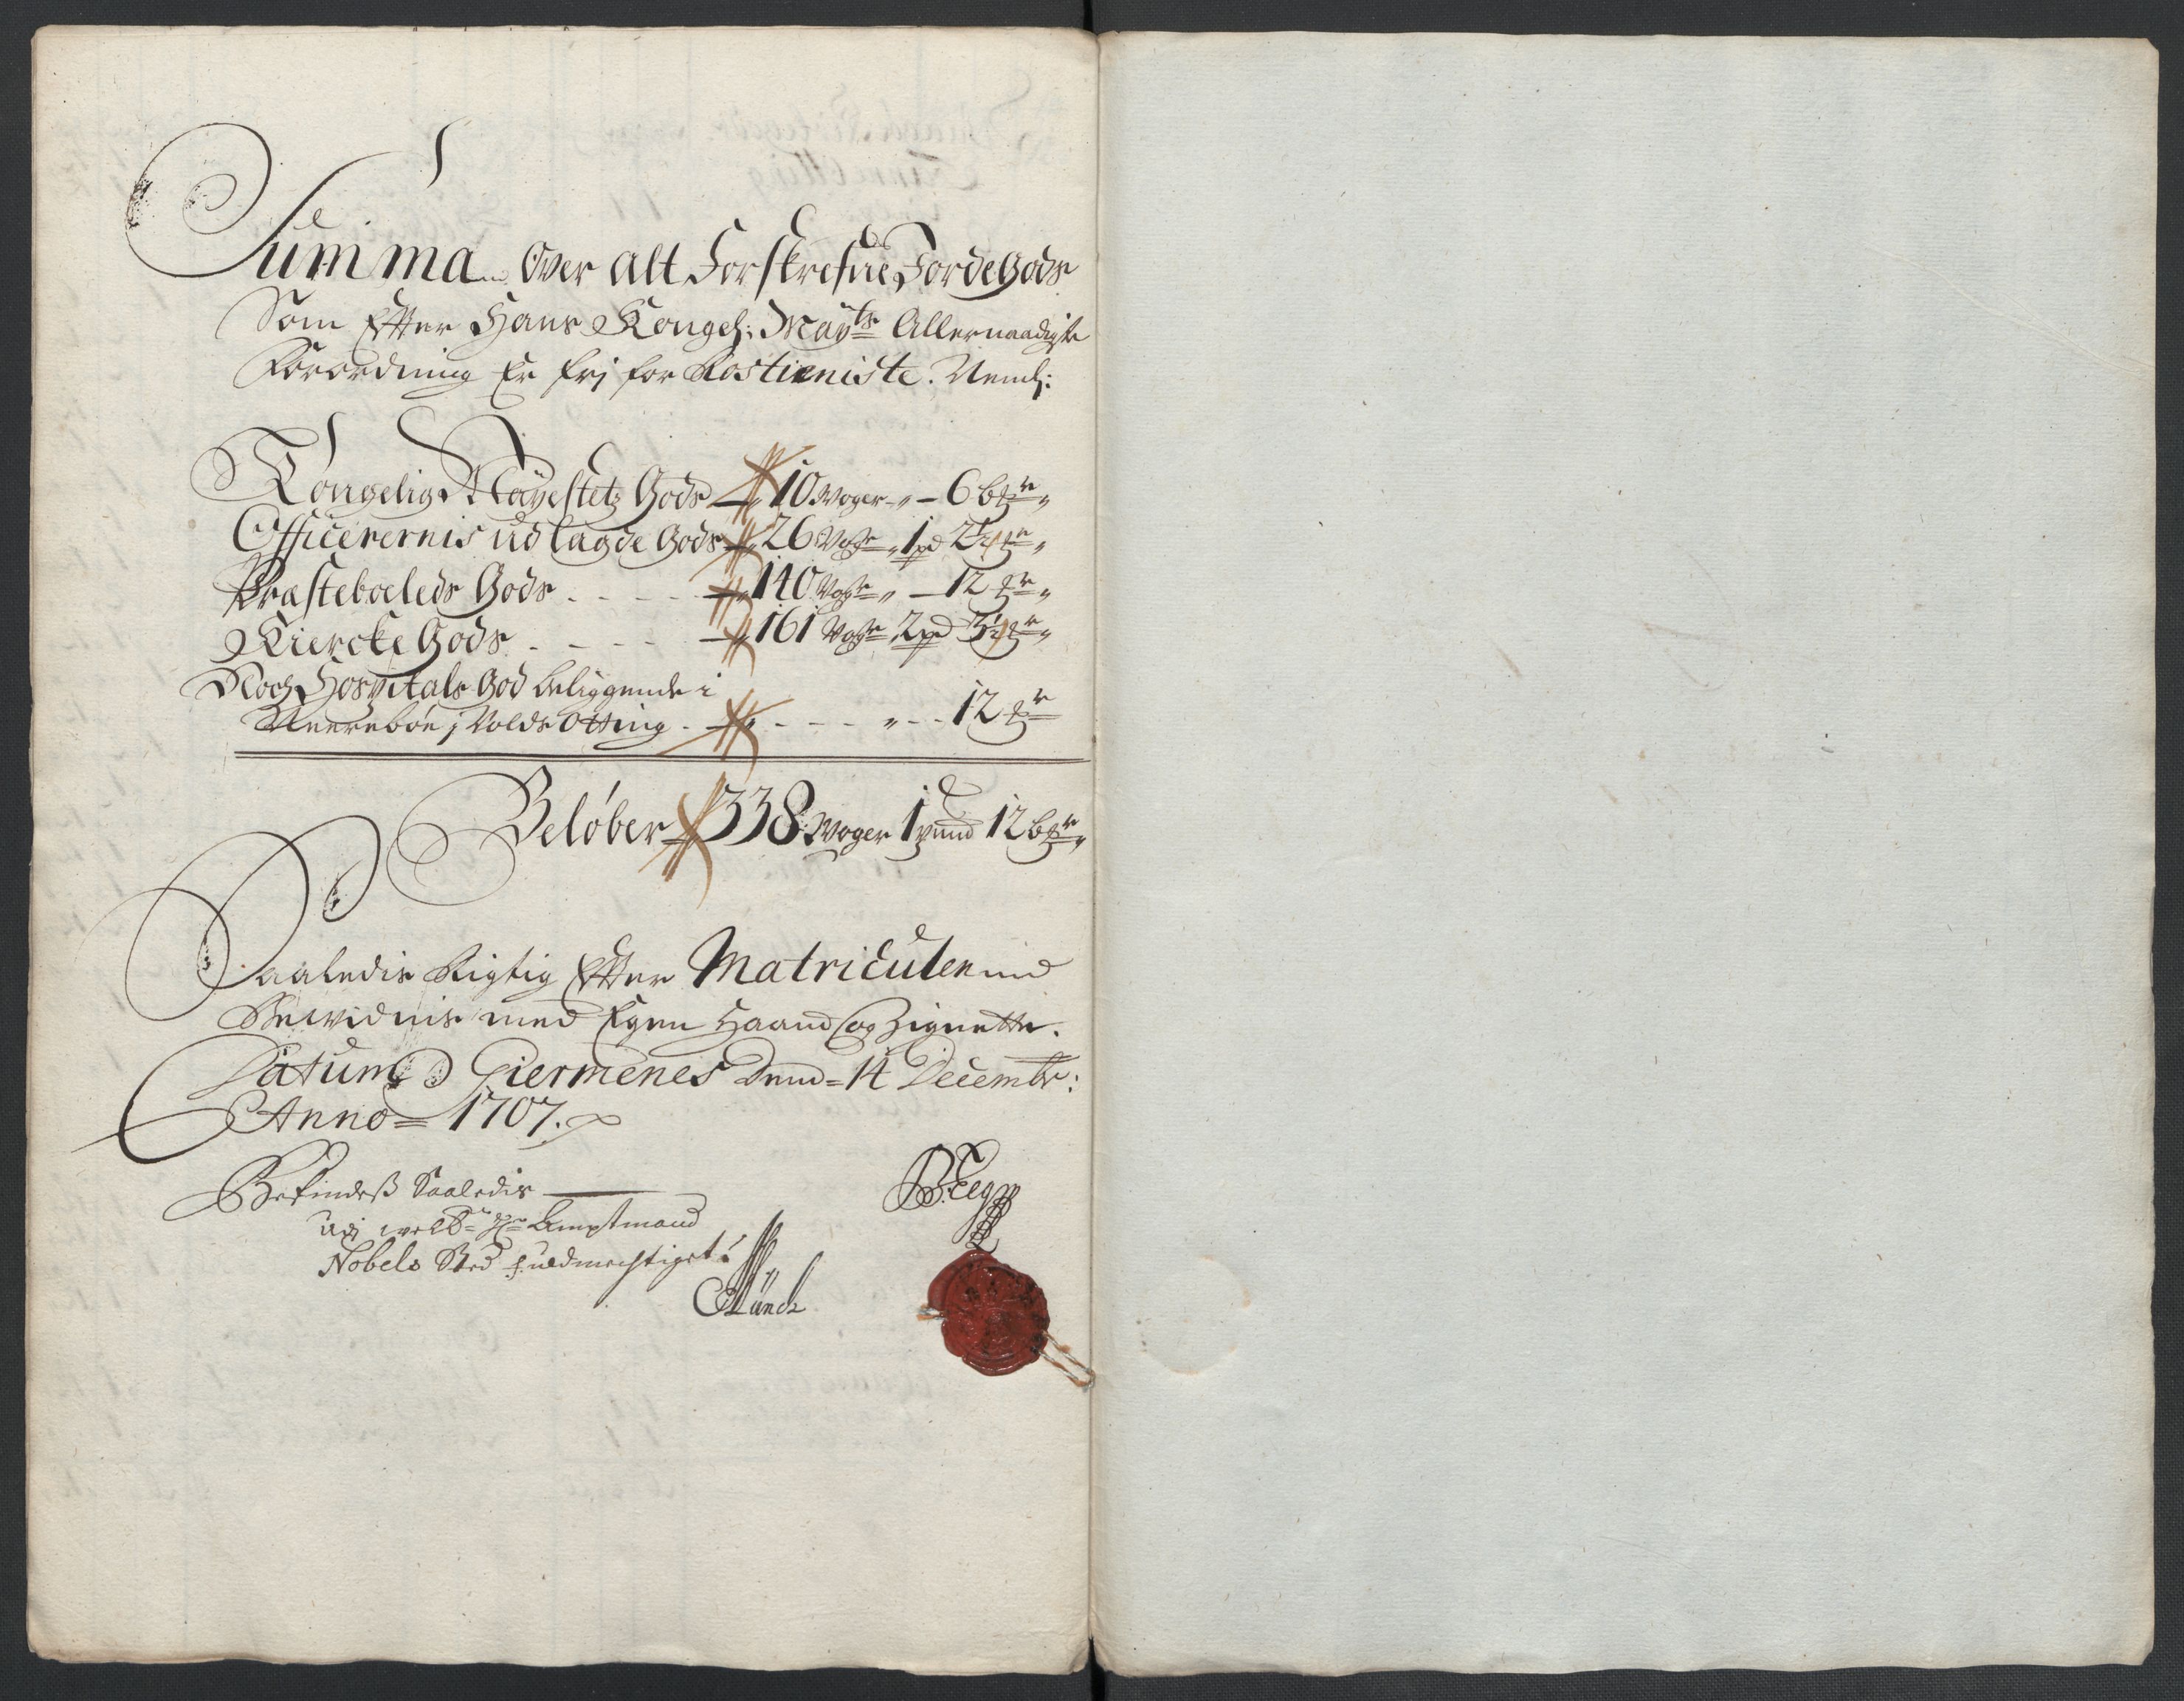 Summa Over alt Forskrefne Jorde Gods
Som Efter Hans Kongel: Mayts Allernaadigste
Forordning Er frj for Rostieniste. Neml:
Kongelig Mayestetz Gods 10 Woger " - 6 bpr "
Officerernis udlagde Gods 26 Wogr " 1 pd 2½ pr "
Præsteboeleds Gods - - - - 140 Wogr " - 12 pr "
Kiercke Gods - - - - 161 Wogr 2 pd 3½ pr "
Noch Hospitals God beliggende i
Neerebøe j Volds Otting - - - - " - - 12 pr
Beløber 338 Woger 1 pund 12 bpr "
Saaledis Rigtig Efter Matriculen
Bewidnis med Egen Haand og Zignette.
Datum Giermenes Dend = 14 Decembr:
Anno = 1707.
Befindeß Saaledis
udj welbr Hr Amptmand
Nobels Sted fuldmechtiget
Münch